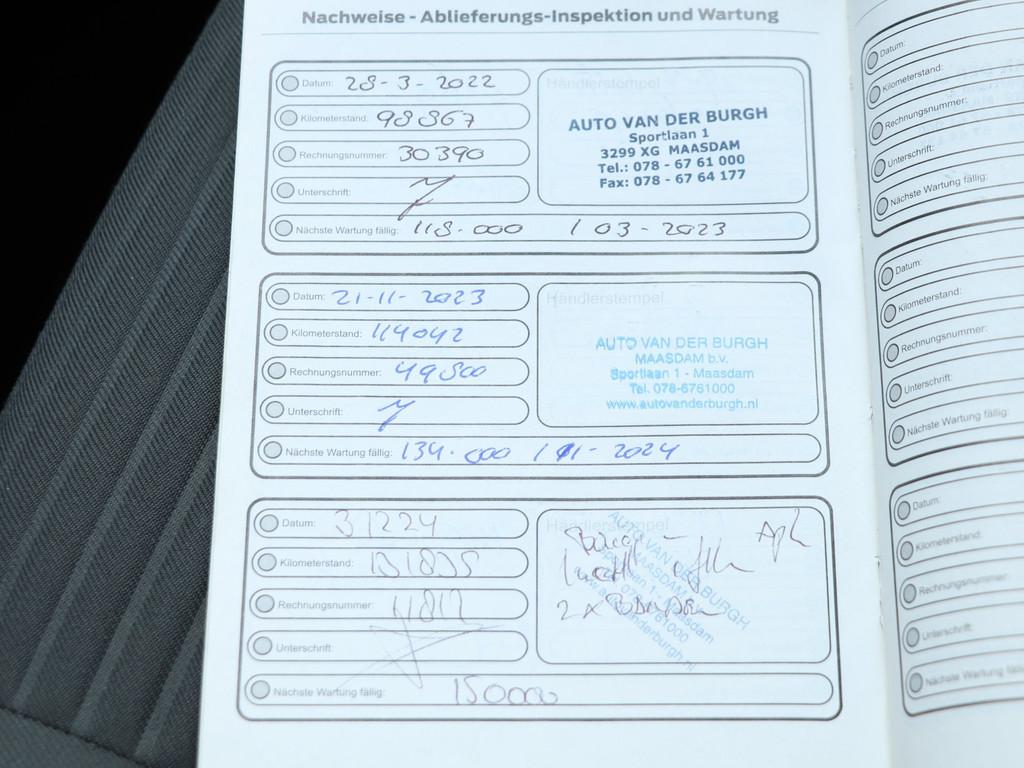 Nachweise - Ablieferungs-Inspektion und Wartung
Datum: 28-3-2022
Kilometerstand: 98367
Rechnungsnummer: 30390
Unterschrift:
Nächste Wartung fällig: 118.000 / 03-2023
Händlerstempel
AUTO VAN DER BURGH
Sportlaan 1
3299 XG MAASDAM
Tel.: 078 - 67 61 000
Fax: 078 - 67 64 177
Datum: 21-11-2023
Kilometerstand: 114042
Rechnungsnummer: 49500
Unterschrift:
Nächste Wartung fällig: 134.000 / 11-2024
Händlerstempel
AUTO VAN DER BURGH
MAASDAM b.v.
Sportlaan 1 - Maasdam
Tel. 078-6761000
www.autovanderburgh.nl
Datum: 31224
Kilometerstand: 131835
Rechnungsnummer:
Unterschrift:
Nächste Wartung fällig: 150000
Händlerstempel
AUTO VAN DER BURGH
MAASDAM
Sportlaan 1 - Maasdam
www.autovanderburgh.nl
2x
Datum:
Kilometerstand:
Rechnungsnummer:
Unterschrift:
Nächste Wartung fällig:
Datum:
Kilometerstand:
Rechnungsnummer:
Unterschrift:
Nächste Wartung fällig:
Datum:
Kilometerstand:
Rechnungsnummer:
Unterschrift:
Nächste Wartung fällig